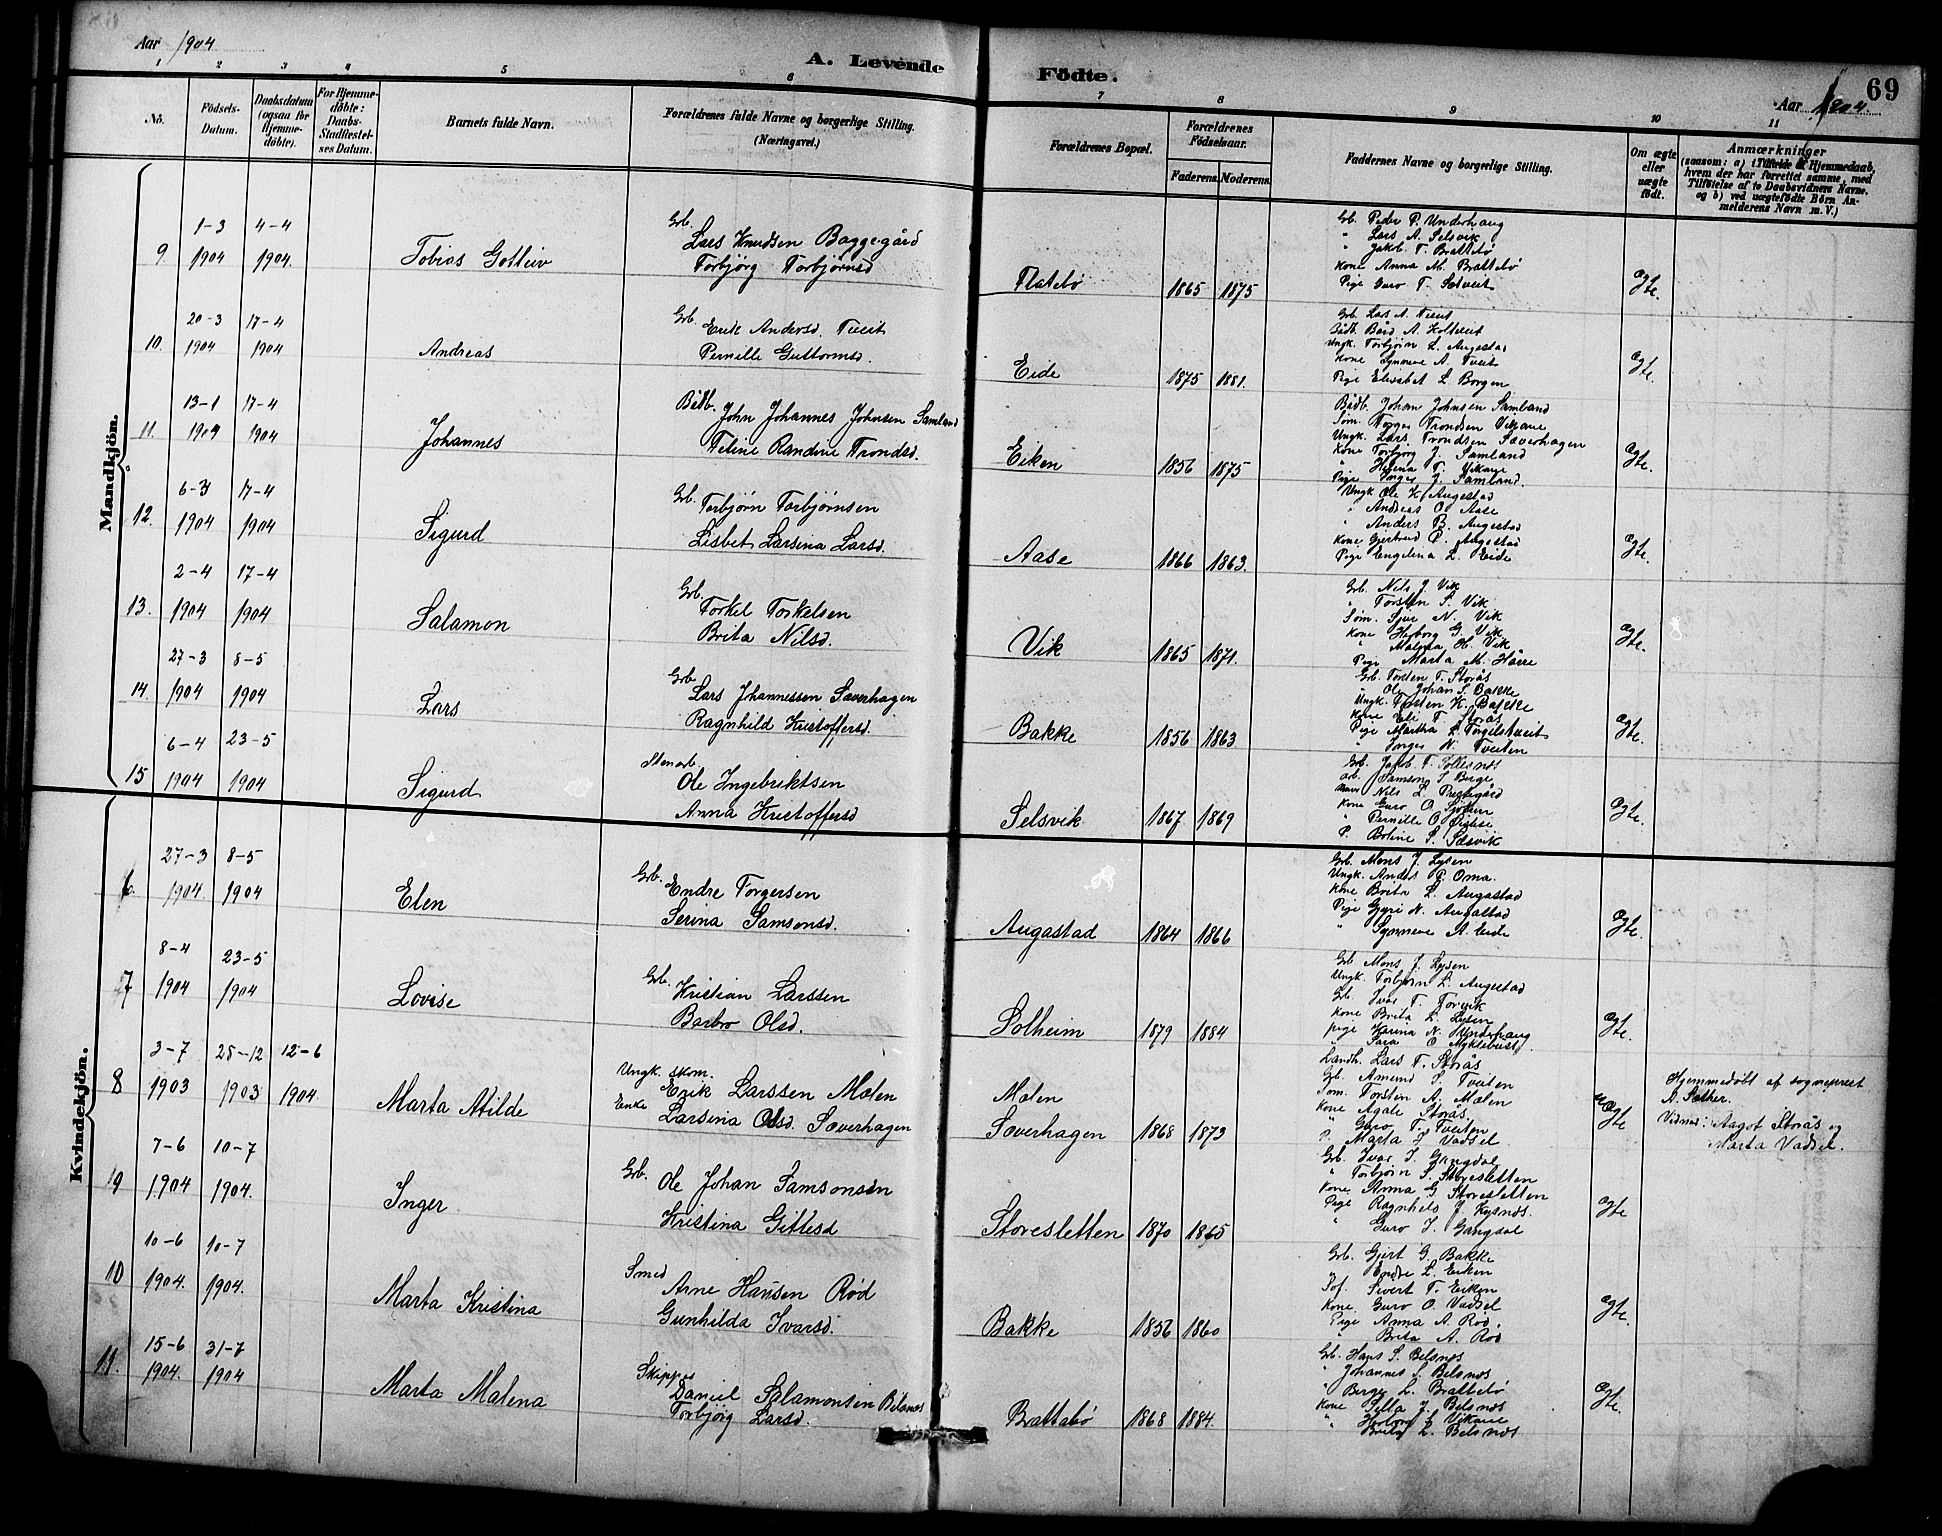 Aar 1904
A. Levende Födte.
Aar 1904.
69
1 2 3 4 5 6 7 8 9 10 11
No.
Födsels-Datum.
Daabsdatum (ogsaa for Hjemme-döbte).
For Hjemme-döbte: Daabs-Stadfæstel-ses Datum.
Barnets fulde Navn.
Forældrenes fulde Navne og borgerlige Stilling. (Næringsvei.)
Forældrenes Bopæl.
Forældrenes Födselsaar.
Faderens. Moderens.
Faddernes Navne og borgerlige Stilling.
Om ægte eller uægte födt.
Anmærkninger (saasom: a) i Tilfælde af Hjemmedaab, hvem der har forrettet samme, med Tilföielse af to Daabsvidners Navne, og b) ved uægtefödte Börn An-melderens Navn m. V.)
Mandkjön.
9. 1-3 1904 4-4 1904. Tobias Gotliv
Grb. Lars Knudsen Baggegård
Torbjörg Torbjörnsd
Flatebö 1865 1875
Grb. Peder P. Underhaug
" Lars A. Selsvik
" Jakob T. Brattebö
Kone Anna M. Brattebö
Pige Guro T. Sætveit
Ægte.
10. 20-3 1904 17-4 1904 Andreas
Grb. Erik Andersd. Tveit
Pernille Guttormsd.
Eide 1875 1881.
Grb. Lars A. Tveit
Bådb. Bård A. Holtveit
Ungk. Torbjörn L. Augestad
Kone Synneve A. Tveit
Pige Elisabet L. Borgen
Ægte.
11. 13-1 1904 17-4 1904 Johannes
Bådb. John Johannes Johnsen Samland
Teline Randine Trondsd.
Eiken 1856 1875
Bådb. Johan Johnsen Samland
Söm. Torges Trondsen Vikane
Ungk. Lars Trondsen Saverhagen
Kone Torbjörg J. Samland
" Helena T. Vikane
Pige Inger J. Samland.
Ægte.
12. 6-3 1904 17-4 1904 Sigurd
Grb. Torbjörn Torbjörnsen
Lisbet Larsina Larsd.
Aase 1866 1863.
Ungk Ole K. Augestad
" Andreas O. Aase
" Anders B. Augestad
Kone Gjertrud P. Augestad
Pige Engelina L. Eide
Ægte.
13. 2-4 1904 17-4 1904 Salamon
Grb. Torkel Torkelsen
Brita Nilsd.
Vik 1865 1871.
Grb. Nils J. Vik
" Torsten S. Vik
Söm. Sjur N. Vik
Kone Herborg G. Vik
" Malena O. Vik
Pige Marta M. Håvre
Ægte.
14. 27-3 1904 8-5 1904 Lars
Grb. Lars Johannessen Saverhagen
Ragnhild Kristoffersd.
Bakke 1856 1863
Grb. Torsten T. Storås
" Ole Johan S. Bakke
Ungk. Torsten K. Bakke
Kone Eli T. Storås
Pige Martha L. Torgelstveit
" Inger N. Tveiten
Ægte.
15 6-4 1904 23-5 1904 Sigurd
Stenarb Ole Ingebriktsen
Anna Kristoffersd
Selsvik 1867 1869
Grb. Jakob T. Tollesnæs
Arb. Samson I. Berge
Nils L. Prestegård
Kone Guro O.
" Pernille O.
P. Boline S. Sæsvik
Ægte.
Kvindekjön.
6. 27-3 1904. 8-5 1904 Elen
Grb. Endre Torgersen
Serina Samsonsd.
Augastad 1864 1866
Grb. Mons J. Lysen
Ungk. Anders P. Oma.
Kone Brita L. Augastad
Pige Gyri N. Augastad
" Synneve A. Eide
Ægte.
7 8-4 1904 23-5 1904 Lovise
Grb. Kristian Larssen
Barbro Olsd.
Solheim 1879 1884
Grb Mons J. Lysen
Ungk. Torbjörn L. Augestad
Grb. Ivar T. Torvik
Kone Brita L. Lysen
Pige Karina N. Underhaug
" Sara O. Myklebust
Ægte.
8 3-7 1903 28-12 1903 12-6 1904. Marta Atilde
Ungk. skom. Erik Larssen Malen
Enke Larsina Olsd. Saverhagen
Malen
Saverhagen 1868 1873
Landh. Lars T. Storås
Grb. Amund S. Tveiten
Söm. Torsten A. Malen
Kone Agate Storås.
" Guro T. Tveiten
P. Marta J. Vadsel
uægte
Hjemmedöbt af sogneprest
A. Sæther.
Vidner: Aagot Storås og
Marta Vadsel.
9 7-6 1904 10-7 1904. Inger
Grb. Ole Johan Samsonsen
Kristina Gittlesd
Storesletten 1870 1865
Grb. Ivar I. Gangdal
" Torbjörn S. Storesletten
Kone Anna G. Storesletten
Pige Ragnhild J. Lysnæs.
" Guro I. Gangdal
Ægte
10 10-6 1904. 10-7 1904. Marta Kristina
Smed Arne Hansen Röd
Gunhilda Ivarsd.
Bakke 1856 1860
Grb. Gjert G. Bakke
" Endre L. Eiken
Sivert T. Eiken
Kone. Guro O. Vadsel
Pige Anna A. Röd.
" Brita A. Röd
Ægte.
11. 15-6 1904. 31-7 1904 Marta Malena
Skipper Daniel Salamonsen Belsnæs
Torbjörg Larsd.
Brattabö 1868 1884.
Grb. Hans S. Belsnæs
" Johannes S. Belsnæs
" Berge L. Brattebö
Kone Pella J. Belsnæs
" Herborg L. Vikane
" Brita L. Belsnæs
Ægte.